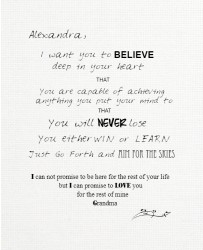 Alexandra,
I want you to BELIEVE
deep in your heart
THAT
You are capable of achieving
anything you put your mind to
THAT
You will NEVER lose
You either WIN or LEARN
Just Go Forth and AIM FOR THE SKIES
I can not promise to be here for the rest of your life
but I can promise to LOVE you
for the rest of mine
Grandma